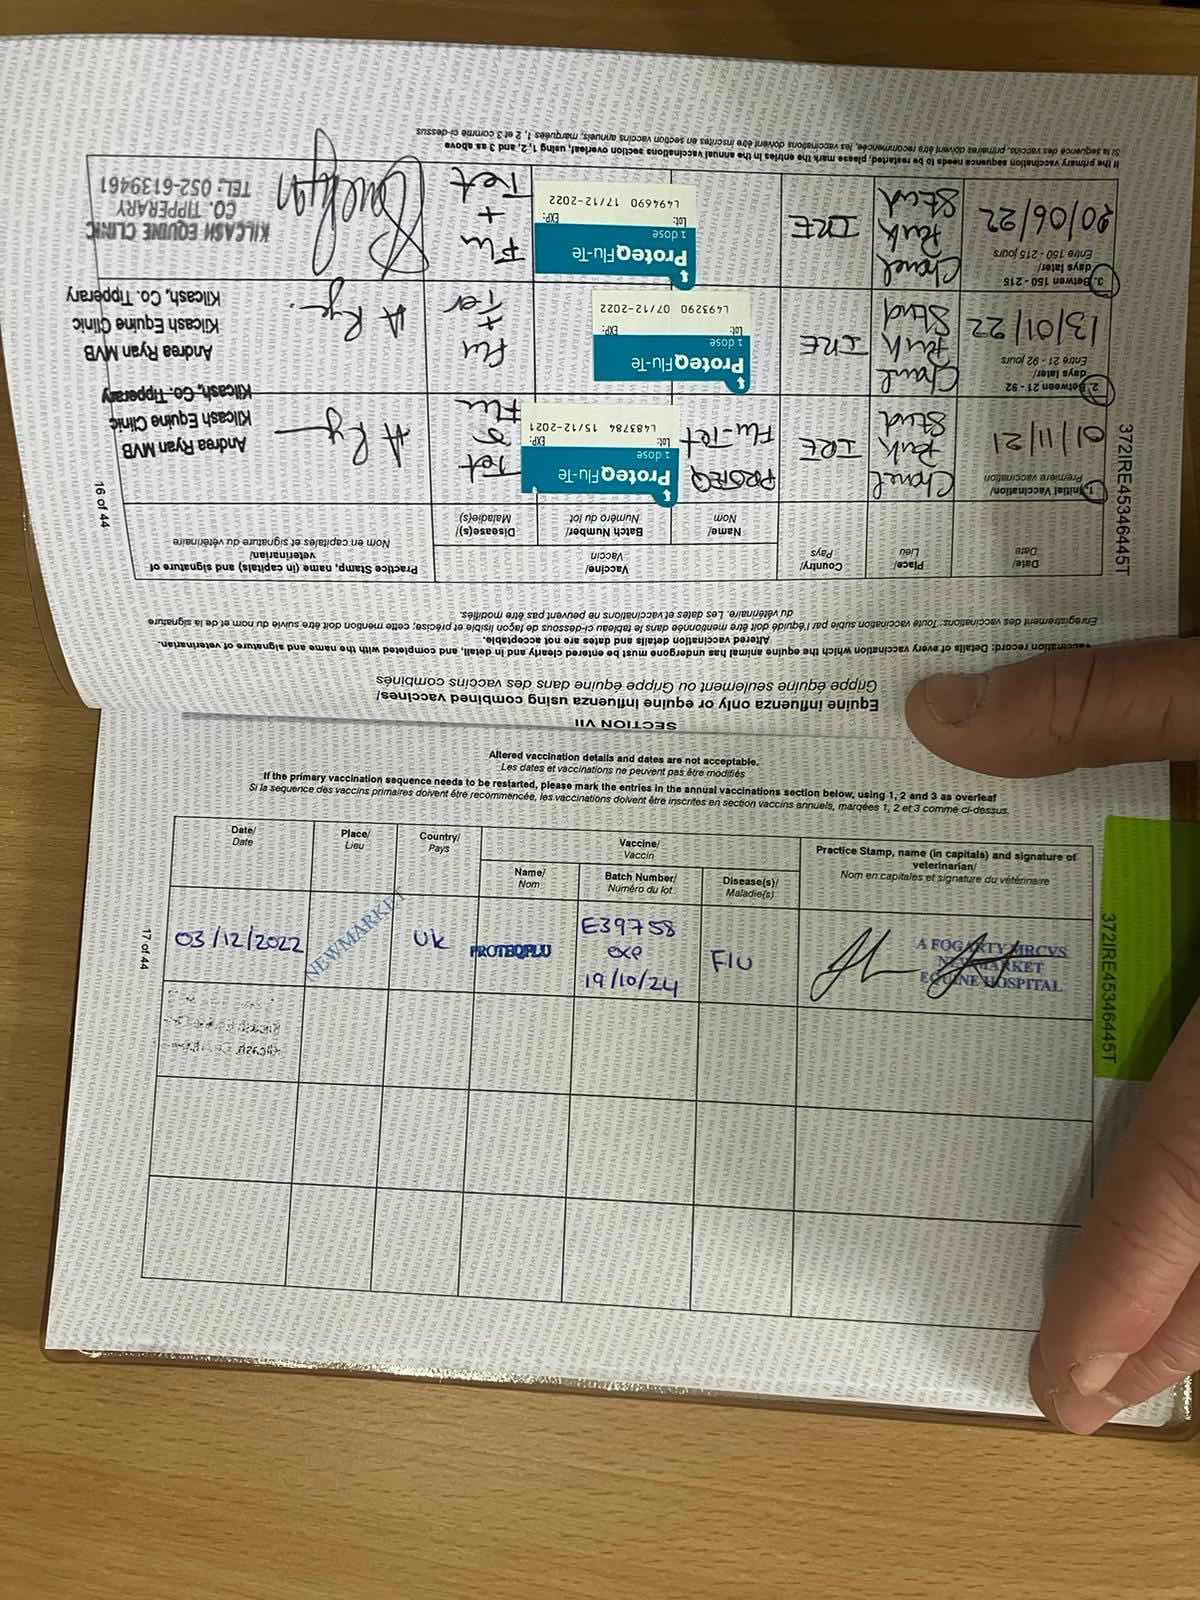 SECTION VII
Equine influenza only or equine influenza using combined vaccines/
Grippe équine seulement ou Grippe équine dans des vaccins combinés
Vaccination record: Details of every vaccination which the equine animal has undergone must be entered clearly and in detail, and completed with the name and signature of veterinarian.
Altered vaccination details and dates are not acceptable.
Enregistrement des vaccinations: Toute vaccination subie par l'équidé doit être mentionnée dans le tableau ci-dessous de façon lisible et précise; cette mention doit être suivie du nom et de la signature
du vétérinaire. Les dates et vaccinations ne peuvent pas être modifiés.
Date/
Date
Place/
Lieu
Country/
Pays
Vaccine/
Vaccin
Name/
Nom
Batch Number/
Numéro du lot
Disease(s)/
Maladie(s)
Practice Stamp, name (in capitals) and signature of
veterinarian/
Nom en capitales et signature du vétérinaire
1. Initial Vaccination/
Première vaccination
01/11/21
Park
Stud
IRE
PROTEQ
FLU-Tet
ProteqFlu-Te
1 dose
Lot: EXP:
L483784 15/12-2021
Tet
&
Flu
A Ry
Andrea Ryan MVB
Kilcash Equine Clinic
Kilcash, Co. Tipperary
2. Between 21 - 92
days later/
Entre 21 - 92 jours
13/01/22
Park
Stud
IRE
ProteqFlu-Te
1 dose
Lot: EXP:
L493290 07/12-2022
Flu
+
Tet
A Ry
Andrea Ryan MVB
Kilcash Equine Clinic
Kilcash, Co. Tipperary
3. Betwen 150 - 215
days later/
Entre 150 - 215 jours
20/06/22
Park
Stud
IRE
ProteqFlu-Te
1 dose
Lot: EXP:
L494690 17/12-2022
Flu
+
Tet
KILCASH EQUINE CLINIC
CO. TIPPERARY
TEL: 052-6139461
If the primary vaccination sequence needs to be restarted, please mark the entries in the annual vaccinations section overleaf, using 1, 2, and 3 as above
Si la sequence des vaccins, primaires doivent être recommencée, les vaccinations doivent être inscrites en section vaccins annuels, marquées 1, 2 et 3 comme ci-dessus
16 of 44
372IRE45346445T
Altered vaccination details and dates are not acceptable.
Les dates et vaccinations ne peuvent pas être modifiés
If the primary vaccination sequence needs to be restarted, please mark the entries in the annual vaccinations section below, using 1, 2 and 3 as overleaf
Si la sequence des vaccins primaires doivent être recommencée, les vaccinations doivent être inscrites en section vaccins annuels, marqées 1, 2 et 3 comme ci-dessus.
Date/
Date
Place/
Lieu
Country/
Pays
Vaccine/
Vaccin
Name/
Nom
Batch Number/
Numéro du lot
Disease(s)/
Maladie(s)
Practice Stamp, name (in capitals) and signature of
veterinarian/
Nom en capitales et signature du vétérinaire
03/12/2022
NEWMARKET
UK
PROTEQFLU
E39758
exp
19/10/24
Flu
A FOGARTY MRCVS
NEWMARKET
EQUINE HOSPITAL
17 of 44
372IRE45346445T